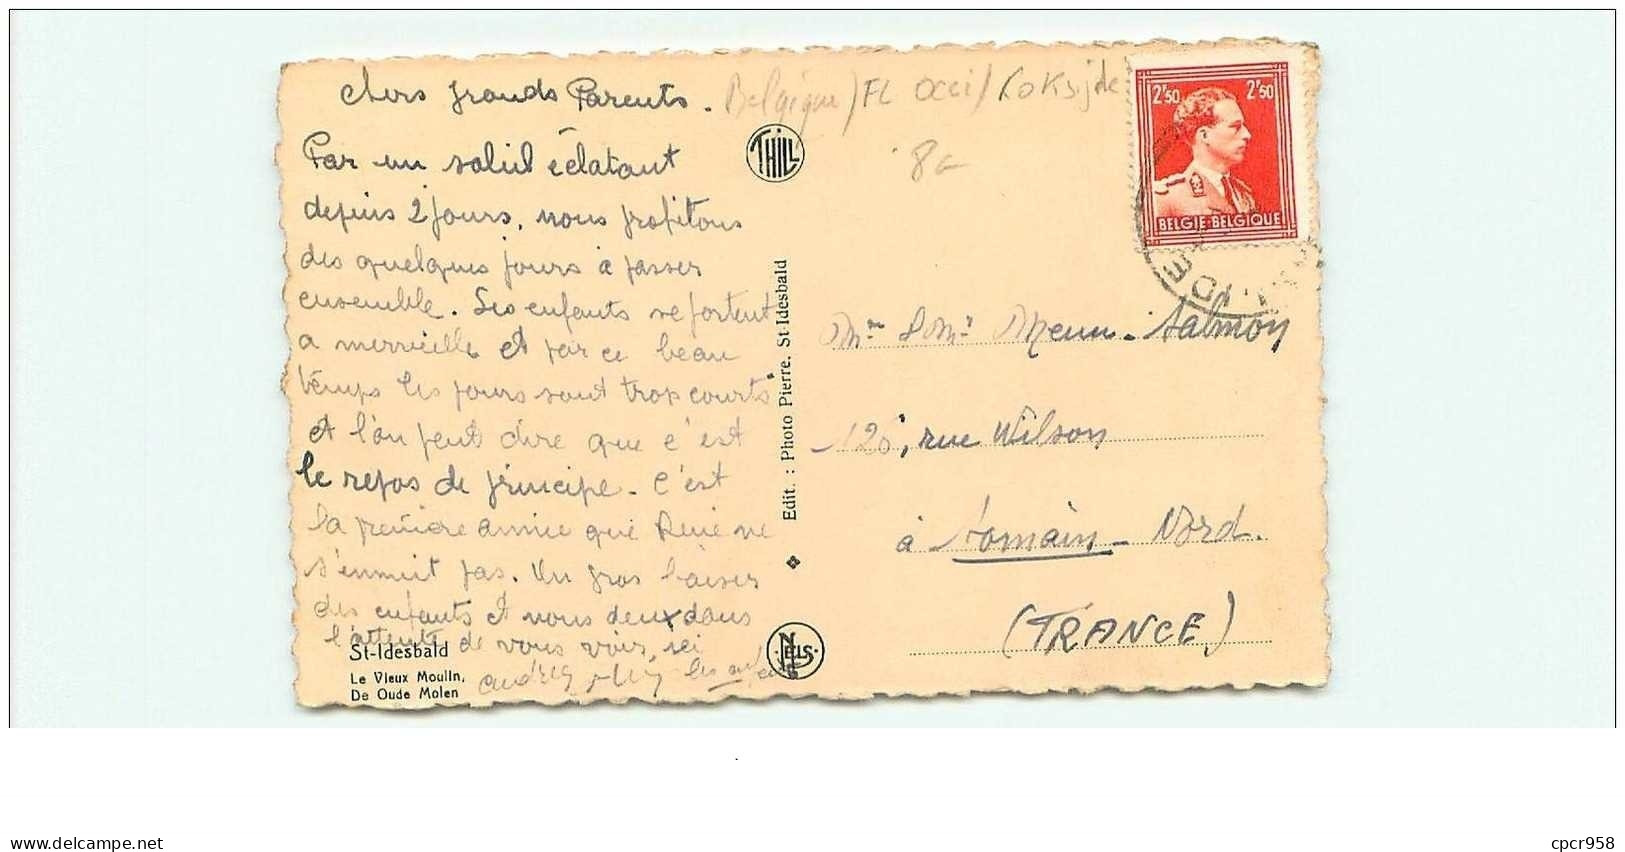 chers grands Parents.
Belgique / FL Occi / Coksijde
8€
Par un soleil éclatant
depuis 2 jours, nous profitons
des quelques jours à passer
ensemble. Les enfants se portent
a merveille et par ce beau
temps les jours sont trop courts
et l'on peut dire que c'est
le repos de principe. C'est
la première année que René ne
s'ennuit pas. Un gros baiser
des enfants et nous deux dans
l'attente de vous voir, ici
les enfants
St-Idesbald
Le Vieux Moulin.
De Oude Molen
THILL
Edit. : Photo Pierre. St-Idesbald
NELS
2F50 2F50
BELGIE-BELGIQUE
Mr & Mme Menu-Salmon
126, rue Wilson
à Somain - Nord.
(FRANCE)
cpcr958